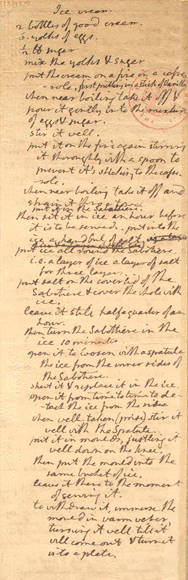 Ice cream.
2. bottles of good cream.
6. yolks of eggs.
1/2 lb sugar
mix the yolks & sugar
put the cream on a fire in a casse-
role, first putting in a stick of Vanilla.
when near boiling take it off &
pour it gently into the mixture
of eggs & sugar.
stir it well.
put it on the fire again stirring
it thoroughly with a spoon to
prevent it's sticking to the casse-
role.
when near boiling take it off and
strain it thro' a towel.
put it in the Sabottiere
then set it in ice an hour before
it is to be served. put into the
put ice all round the Sabottiere
i.e. a layer of ice a layer of salt
for three layers.
put salt on the coverlid of the
Sabotiere & cover the whole with
ice.
leave it still half a quarter of an
hour.
then turn the Sabottiere in the
ice 10 minutes
open it to loosen with a spatula
the ice from the inner sides of
the Sabotiere.
shut it & replace it in the ice
open it from time to time to de-
tach the ice from the sides
when well taken (prise) stir it
well with the Spatula.
put it in moulds, justling it
well down on the knee.
then put the mould into the
same bucket of ice.
leave it there to the moment
of serving it.
to withdraw it, immerse the
mould in warm water,
turning it well till it
will come out & turn it
into a plate.